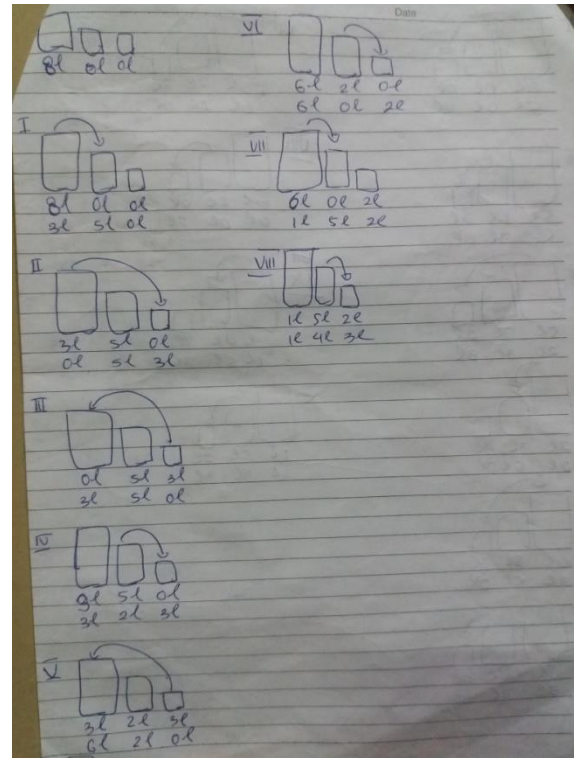 Date
8l 0l 0l
I
8l 0l 0l
3l 5l 0l
II
3l 5l 0l
0l 5l 3l
III
0l 5l 3l
3l 5l 0l
IV
3l 5l 0l
3l 2l 3l
V
3l 2l 3l
6l 2l 0l
VI
6l 2l 0l
6l 0l 2l
VII
6l 0l 2l
1l 5l 2l
VIII
1l 5l 2l
1l 4l 3l